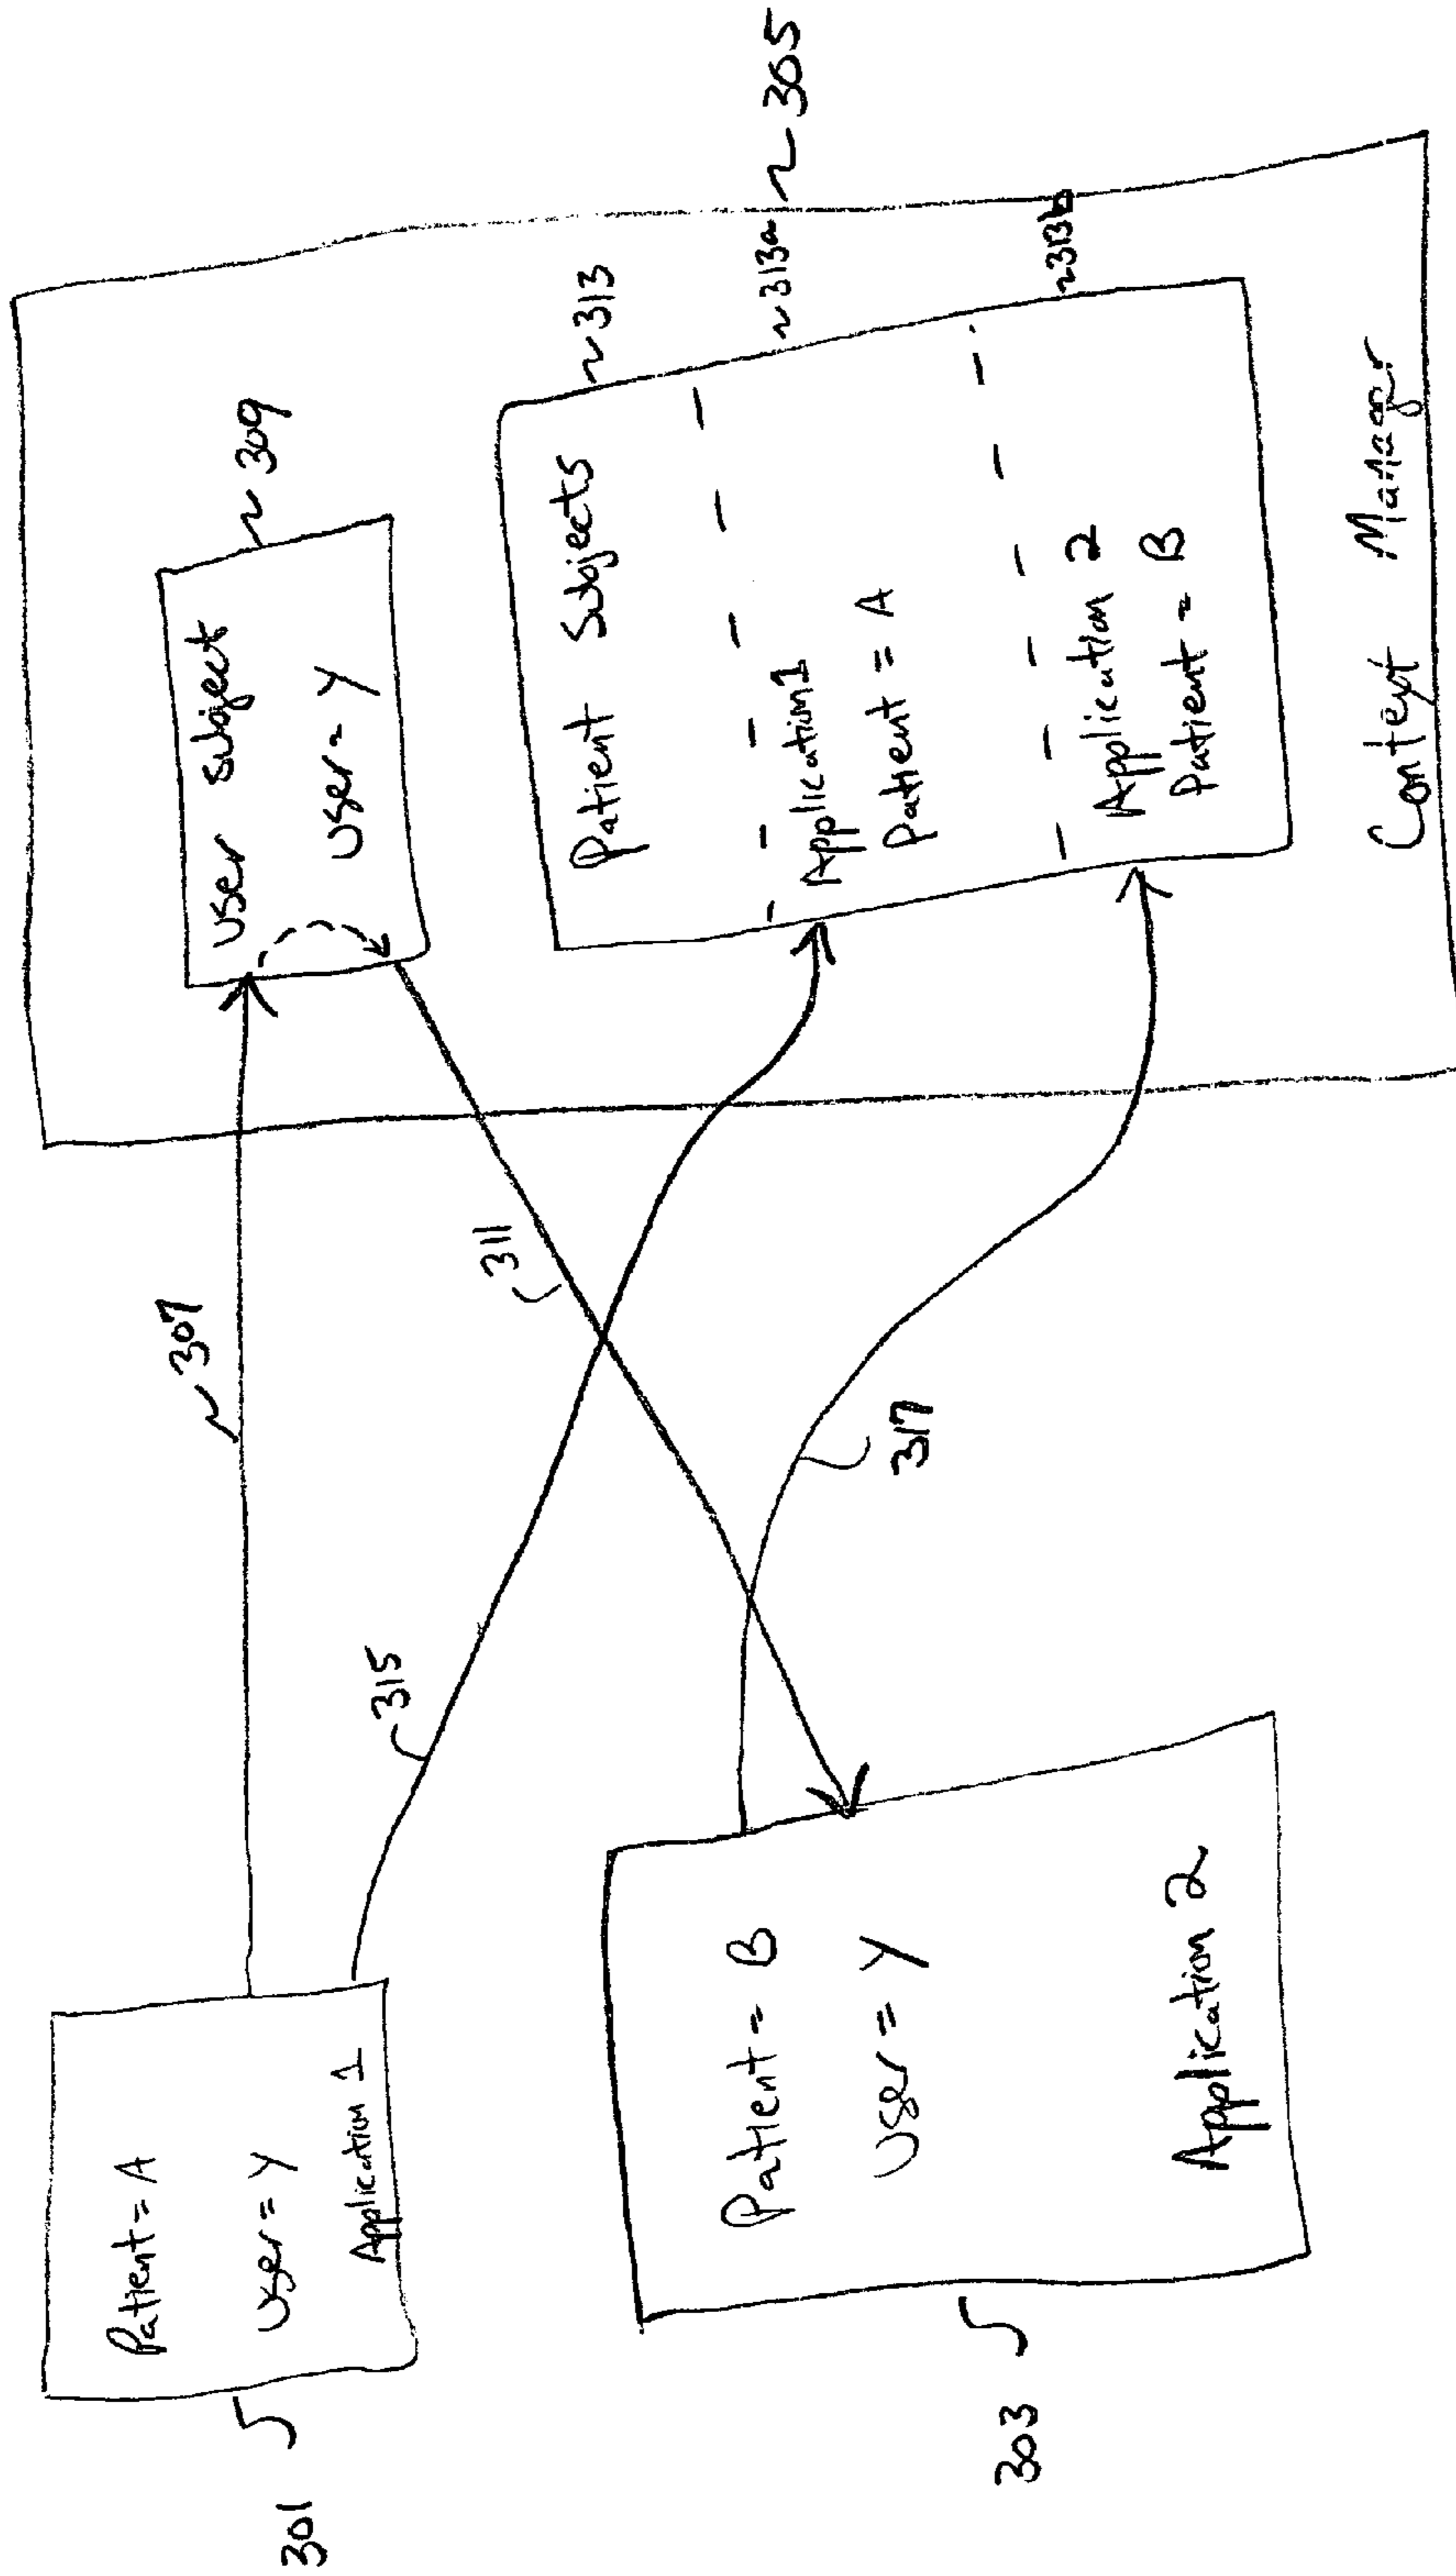 301
Patient = A
User = Y
Application 1
303
Patient = B
User = Y
Application 2
307
315
311
317
User Subject
User = Y
309
Patient Subjects
313
Application 1
Patient = A
313a
Application 2
Patient = B
313b
Context Manager
305